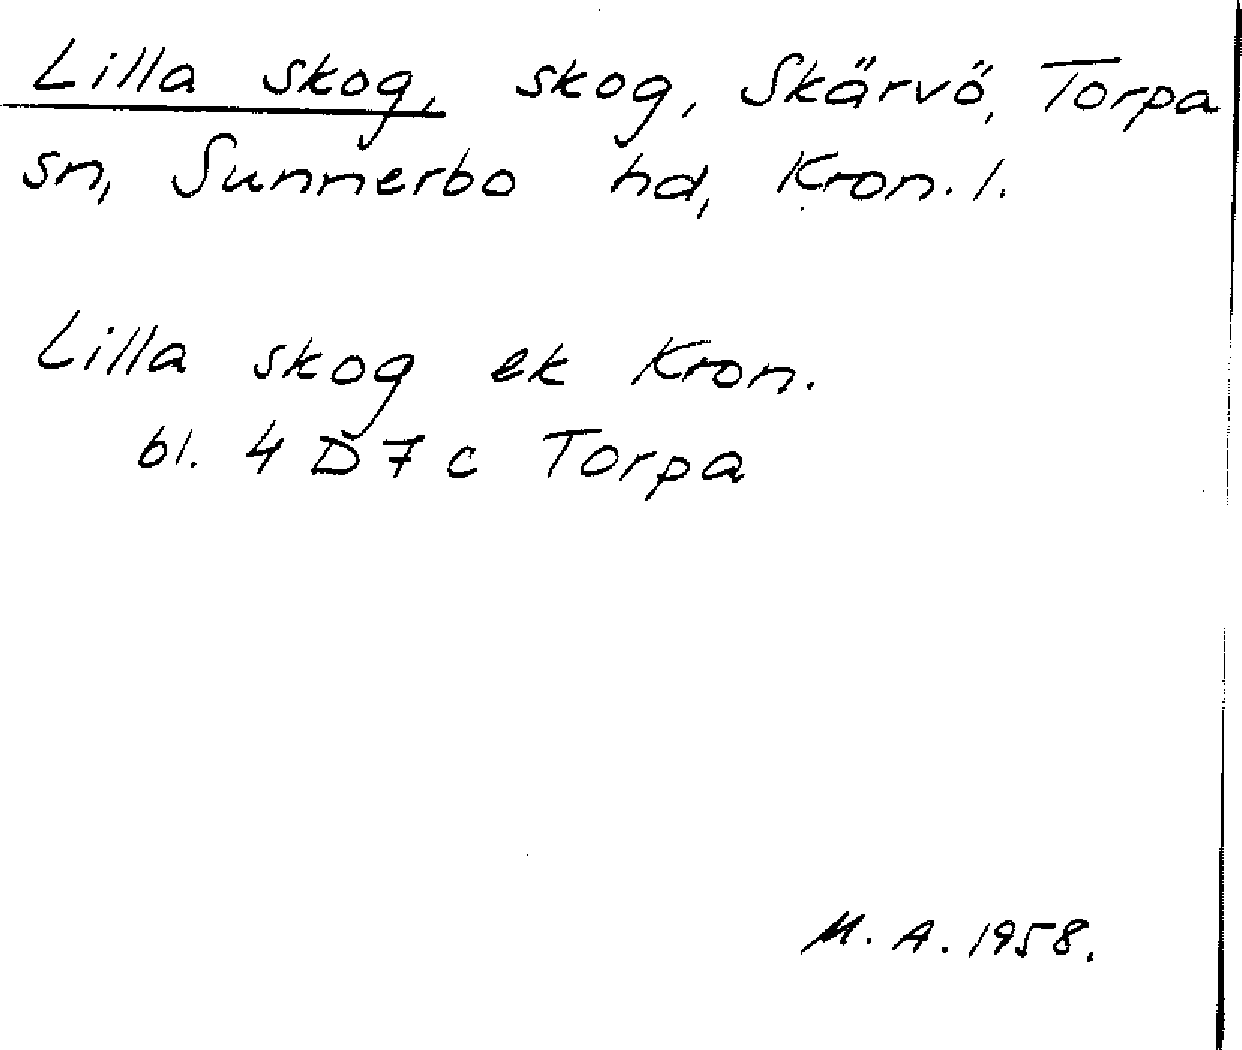 Lilla skog, skog, Skärvö, Torpa
sn, Sunnerbo hd, Kron. l.
Lilla skog ek Kron.
bl. 4 D 7 c Torpa
M. A. 1958.